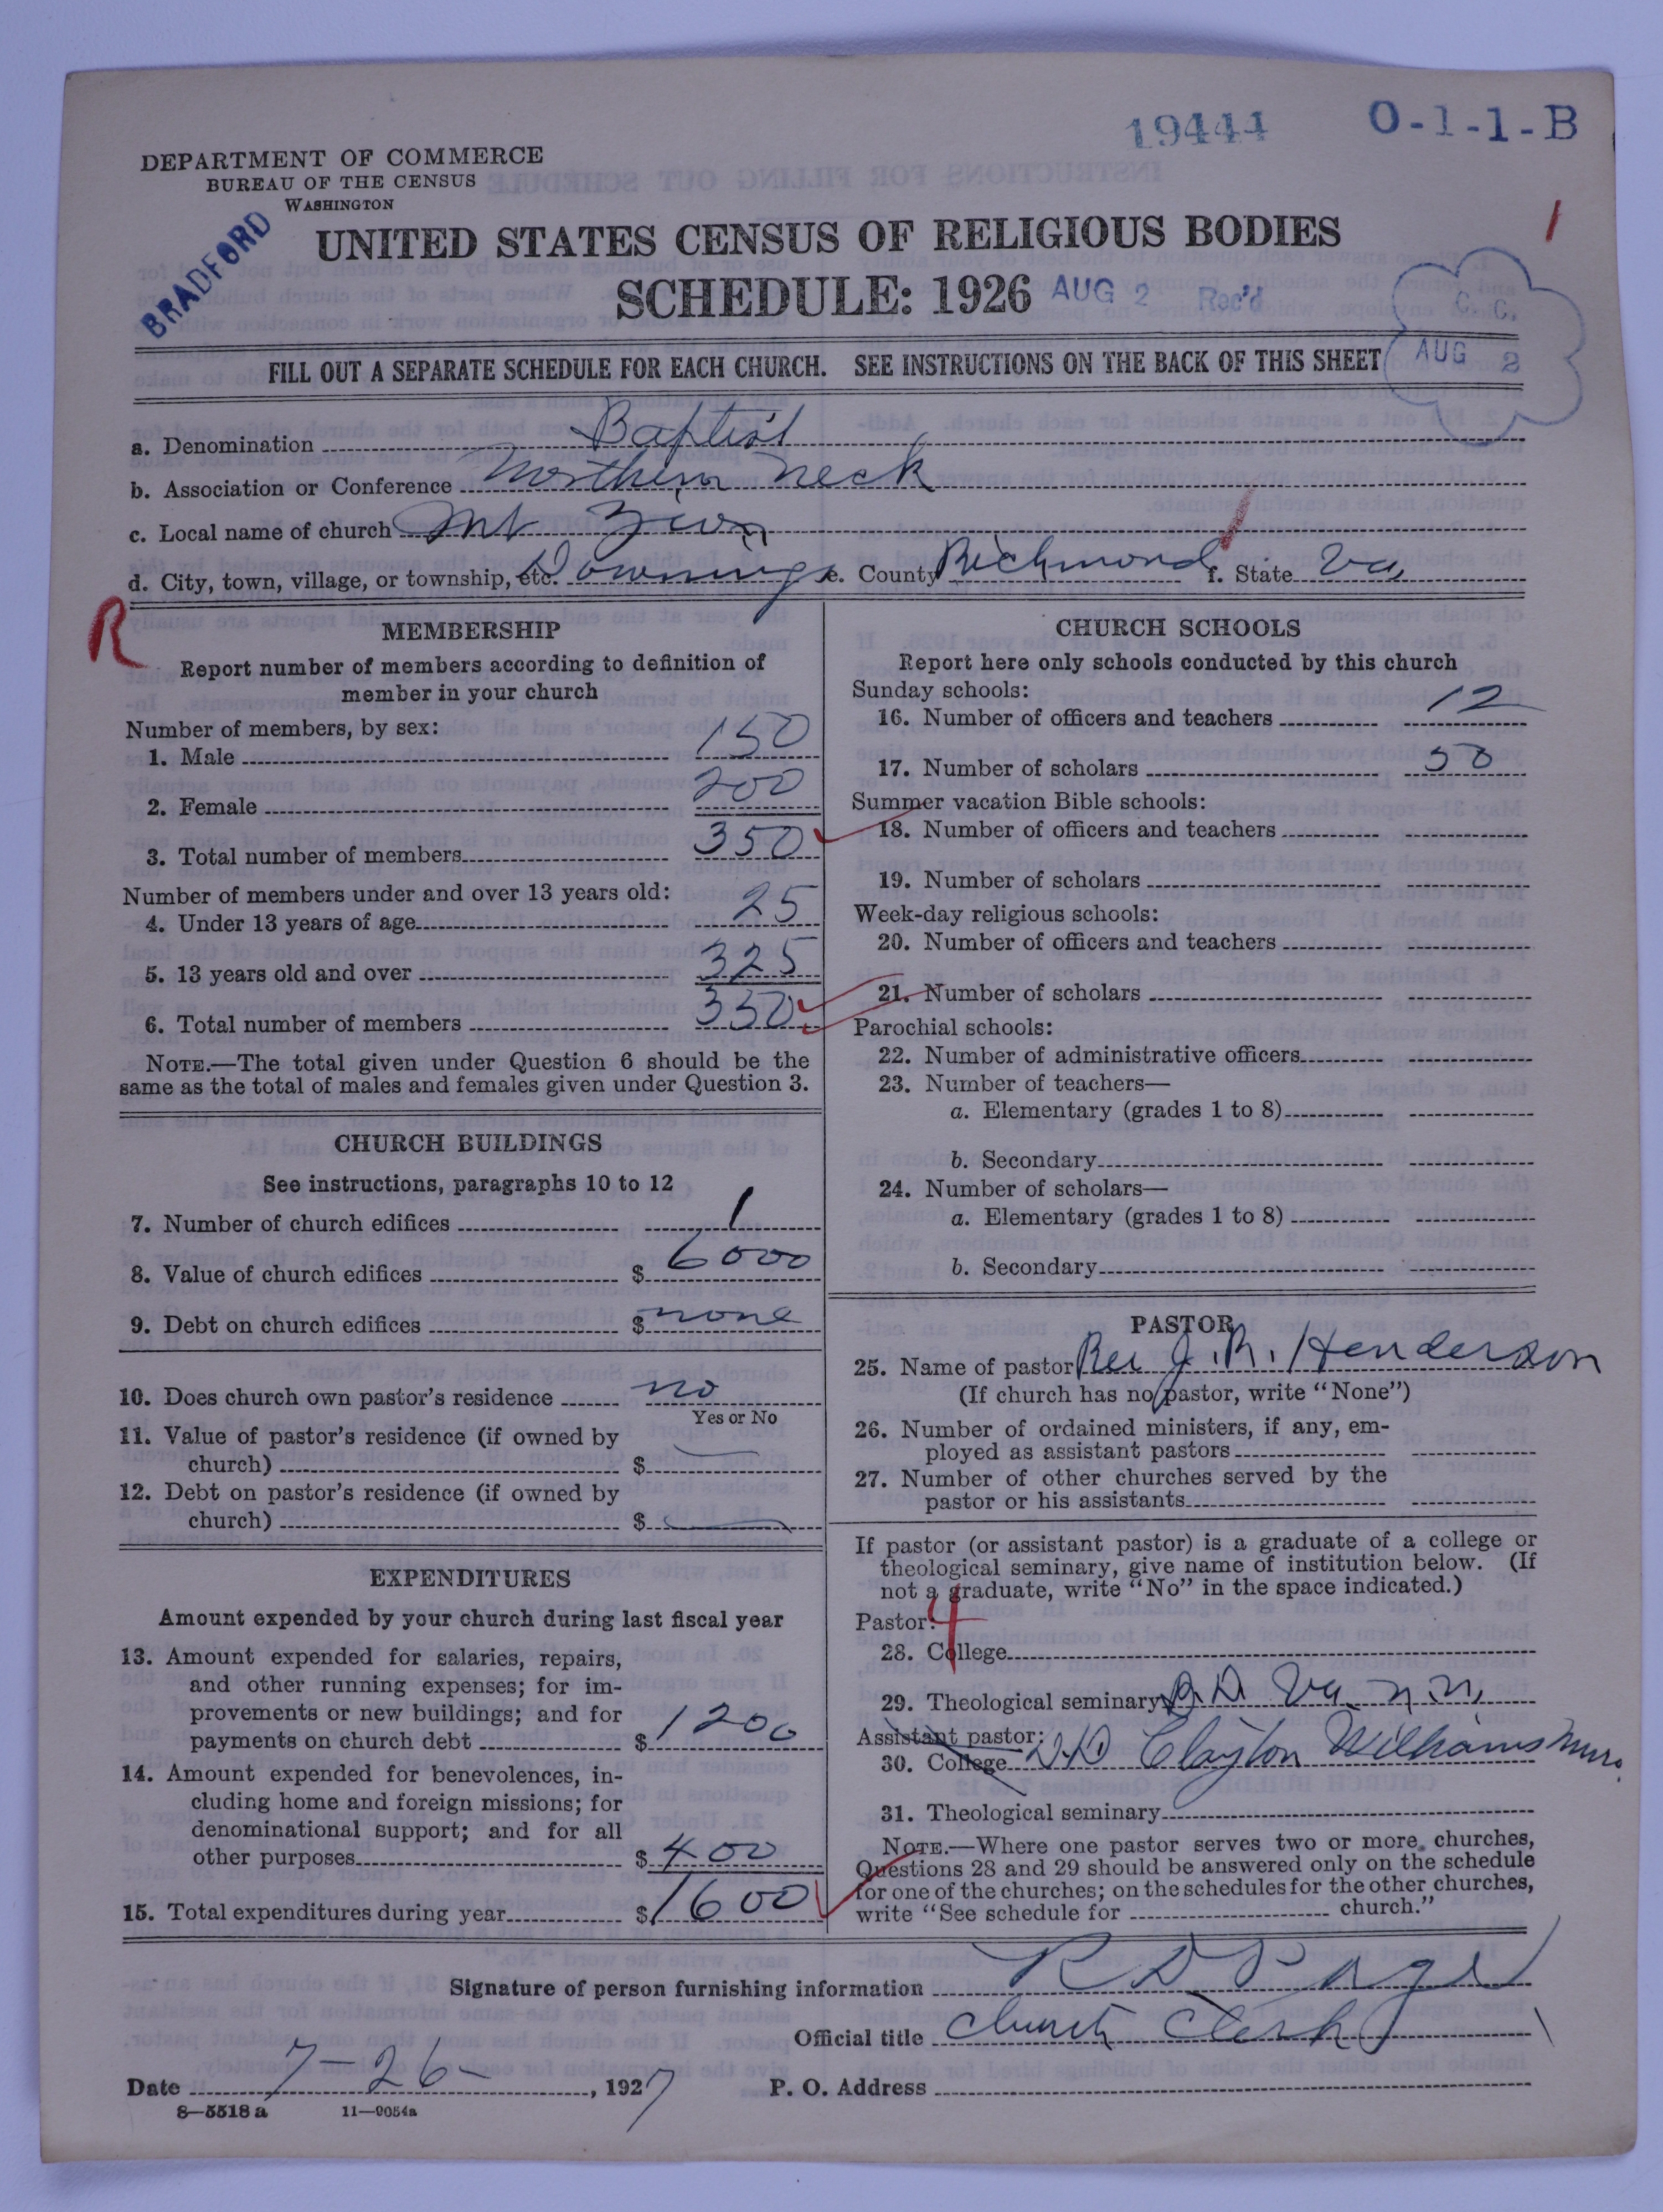 19444 O-1-1-B
DEPARTMENT OF COMMERCE
BUREAU OF THE CENSUS
WASHINGTON
BRADFORD
UNITED STATES CENSUS OF RELIGIOUS BODIES
SCHEDULE: 1926 AUG 2 Rec'd
C. C.
AUG 2
FILL OUT A SEPARATE SCHEDULE FOR EACH CHURCH. SEE INSTRUCTIONS ON THE BACK OF THIS SHEET
a. Denomination Baptist
b. Association or Conference Northern Neck
c. Local name of church Mt Zion
d. City, town, village, or township, etc. Downings e. County Richmond f. State Va,
R
MEMBERSHIP
Report number of members according to definition of
member in your church
Number of members, by sex:
1. Male 150
2. Female 200
3. Total number of members 350
Number of members under and over 13 years old:
4. Under 13 years of age 25
5. 13 years old and over 325
6. Total number of members 350
NOTE.—The total given under Question 6 should be the
same as the total of males and females given under Question 3.
CHURCH BUILDINGS
See instructions, paragraphs 10 to 12
7. Number of church edifices 1
8. Value of church edifices $ 6000
9. Debt on church edifices $ none
10. Does church own pastor's residence no
Yes or No
11. Value of pastor's residence (if owned by
church) $
12. Debt on pastor's residence (if owned by
church) $
EXPENDITURES
Amount expended by your church during last fiscal year
13. Amount expended for salaries, repairs,
and other running expenses; for im-
provements or new buildings; and for
payments on church debt $ 1200
14. Amount expended for benevolences, in-
cluding home and foreign missions; for
denominational support; and for all
other purposes $ 400
15. Total expenditures during year $ 1600
CHURCH SCHOOLS
Report here only schools conducted by this church
Sunday schools:
16. Number of officers and teachers 12
17. Number of scholars 50
Summer vacation Bible schools:
18. Number of officers and teachers
19. Number of scholars
Week-day religious schools:
20. Number of officers and teachers
21. Number of scholars
Parochial schools:
22. Number of administrative officers
23. Number of teachers—
a. Elementary (grades 1 to 8)
b. Secondary
24. Number of scholars—
a. Elementary (grades 1 to 8)
b. Secondary
PASTOR
25. Name of pastor Rev J. R. Henderson
(If church has no pastor, write "None")
26. Number of ordained ministers, if any, em-
ployed as assistant pastors
27. Number of other churches served by the
pastor or his assistants
If pastor (or assistant pastor) is a graduate of a college or
theological seminary, give name of institution below. (If
not a graduate, write "No" in the space indicated.)
Pastor: 4
28. College
29. Theological seminary Va.
Assistant pastor:
30. College D.D Clayton Williams
31. Theological seminary
NOTE.—Where one pastor serves two or more churches,
Questions 28 and 29 should be answered only on the schedule
for one of the churches; on the schedules for the other churches,
write "See schedule for church."
Signature of person furnishing information R D Page
Official title Church Clerk
Date 7-26-, 1927 P. O. Address
8-5518 a 11—9054a